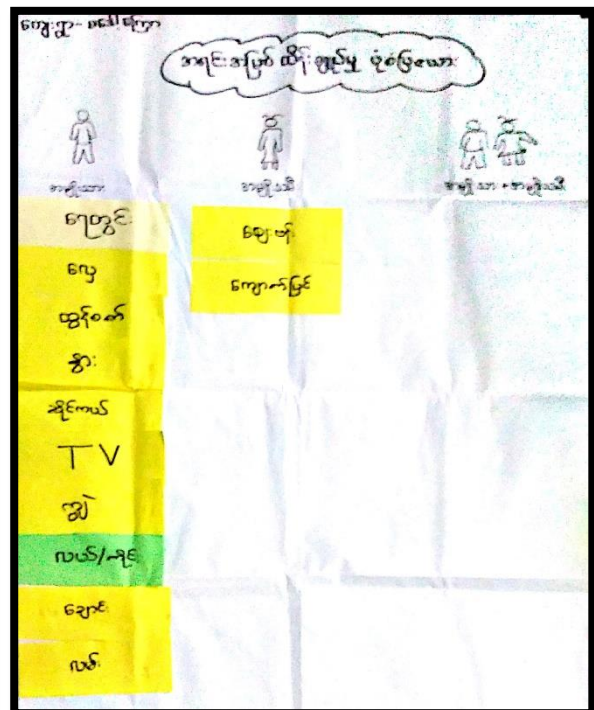 ကျေးရွာ-
အရင်းအမြစ် ထိန်းချုပ်မှု ပုံစံပြဇယား
အမျိုးသား
အမျိုးသမီး
အမျိုးသား + အမျိုးသမီး
ရေတွင်း
လှေ
ထွန်စက်
နွား
ဆိုင်ကယ်
TV
ကျွဲ
လယ်/
ချောင်း
လမ်း
ဈေး
ကျောက်ဖြစ်